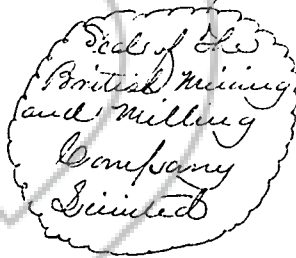 Seal of The
British Mining
and Milling
Company
Limited